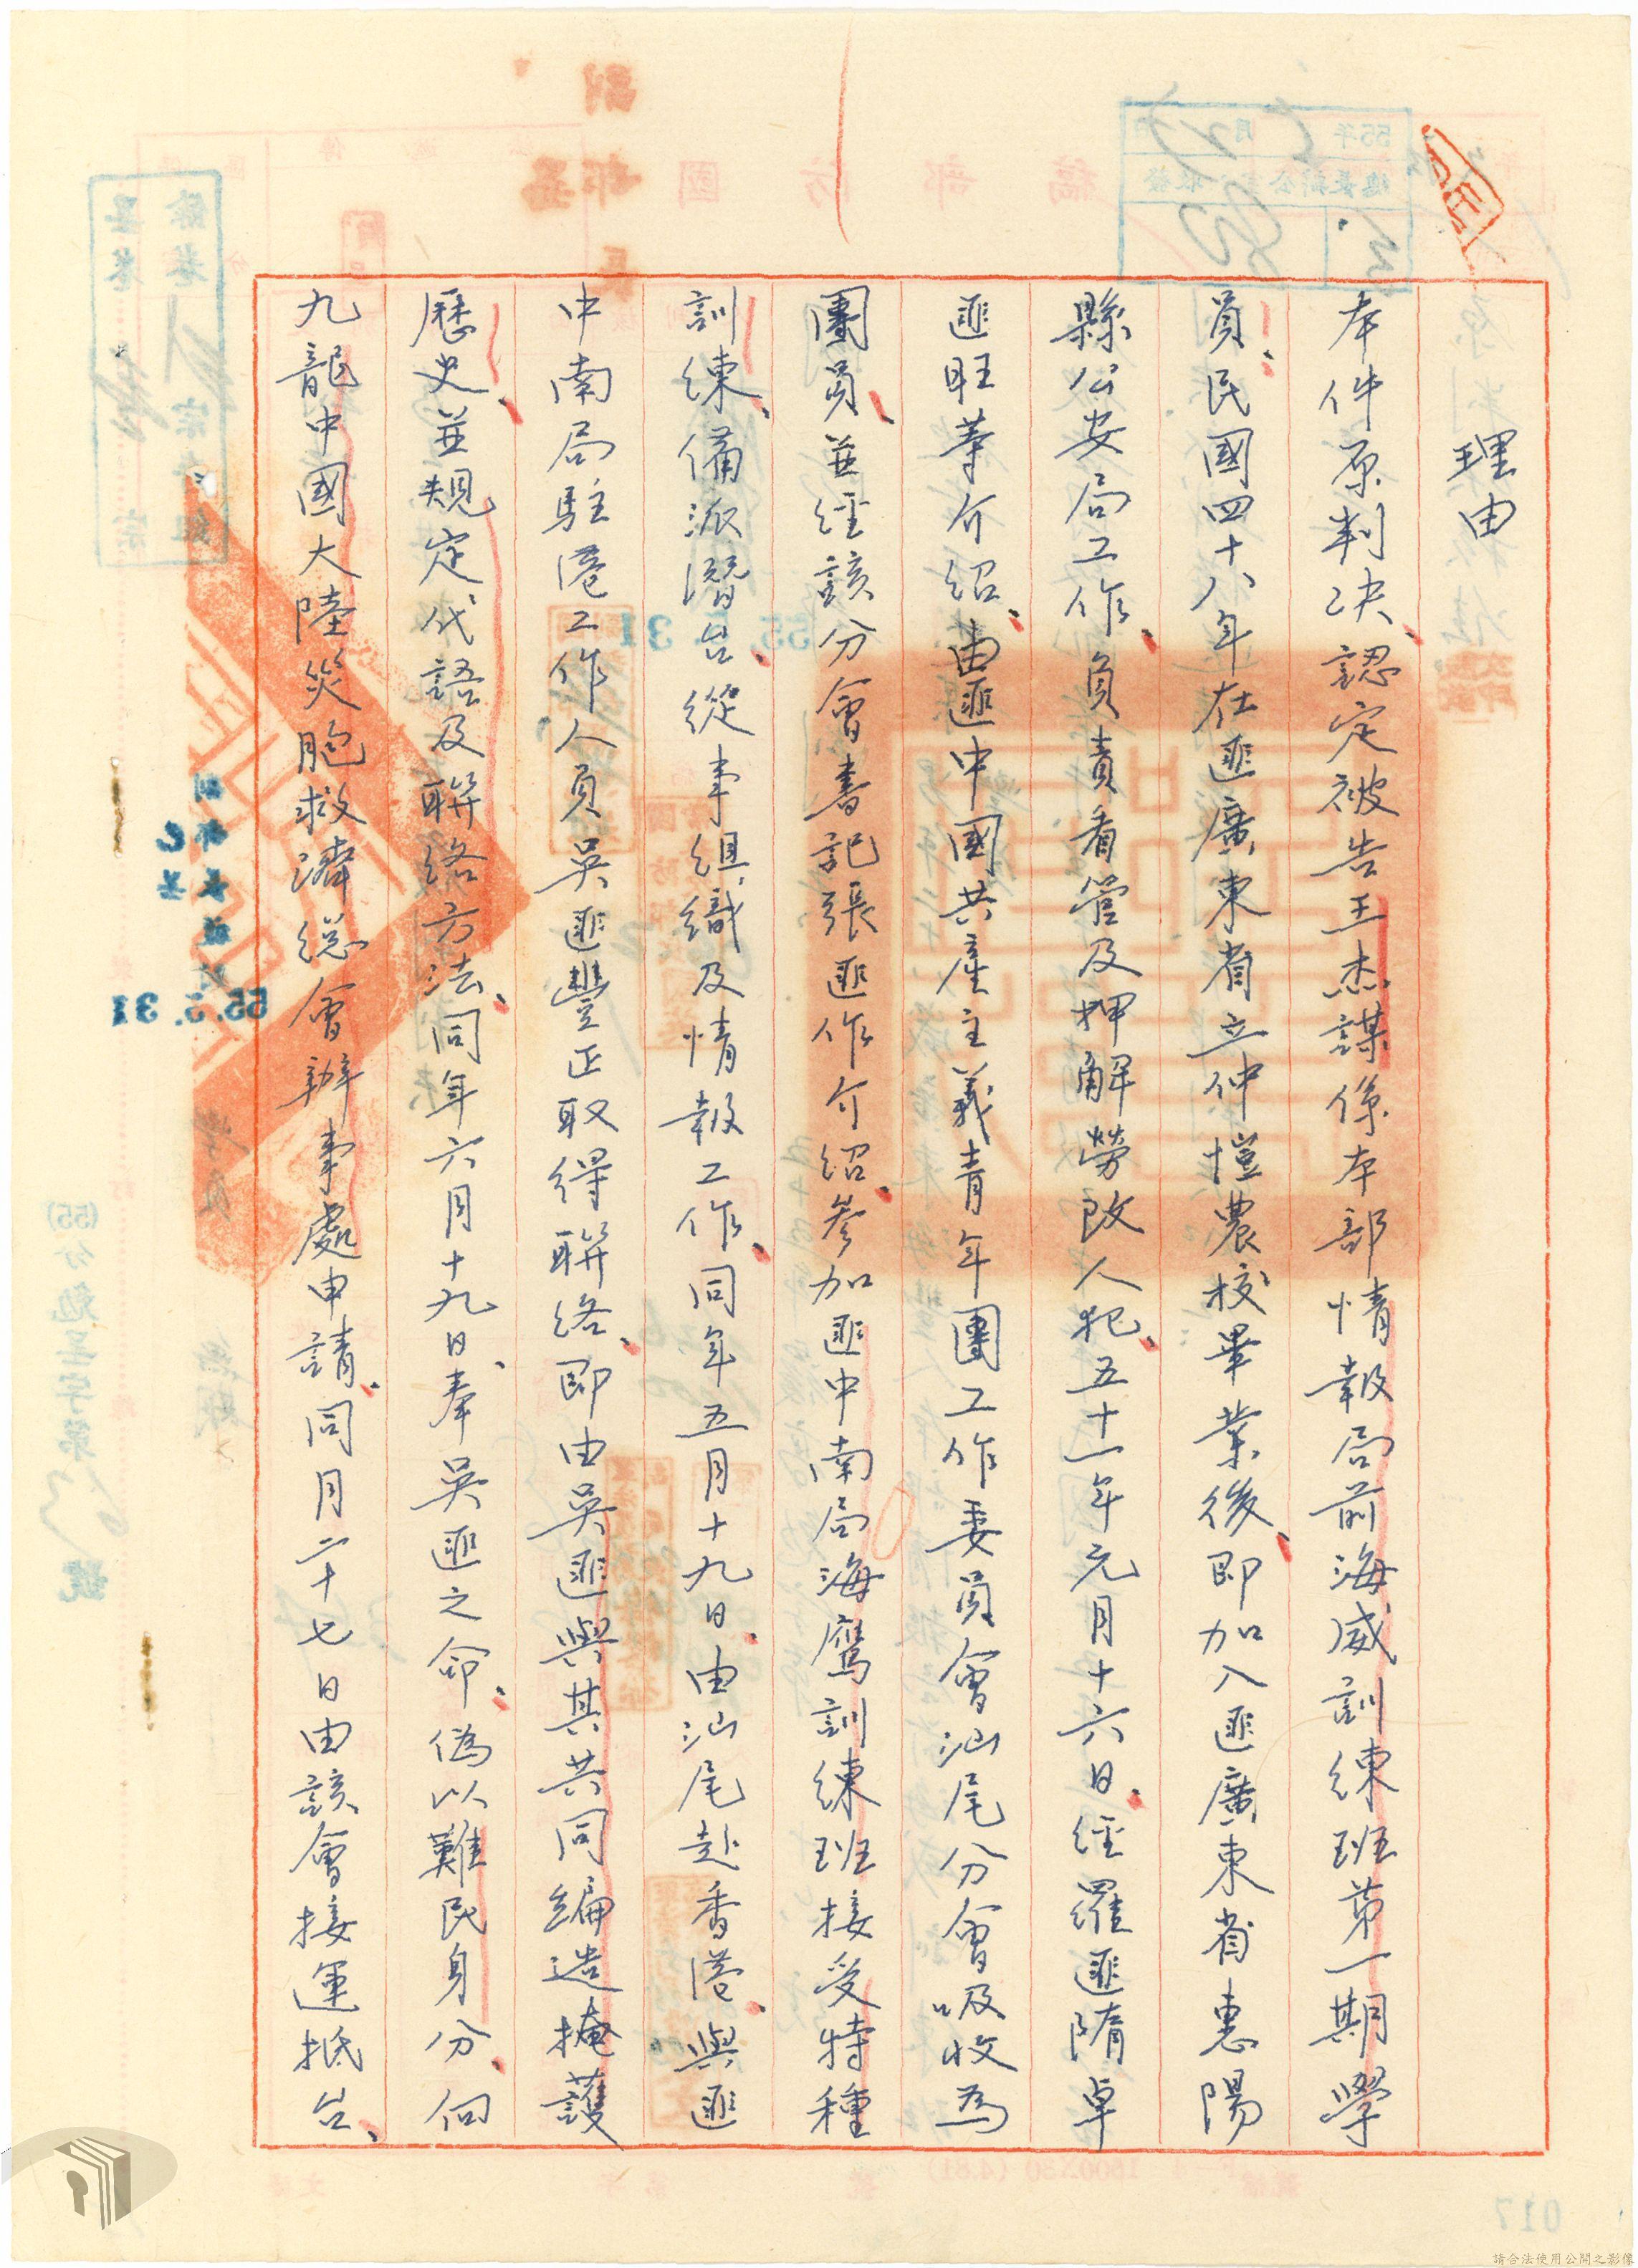 理由
本件原判決、認定被告王杰謀係本部情報局前海威訓練班第一期學
員、民國四十八年在匪廣東省立仲愷農校畢業後、即加入匪廣東省惠陽
縣公安局工作、負責看管及押解勞改人犯、五十一年元月十六日、經羅匪隋卓
匪旺菶介紹、由匪中國共產主義青年團工作委員會汕尾分會吸收為
團員、並經該分會書記張匪作介紹、參加匪中南局海鷹訓練班接受特種
訓練、備派潛台、從事組織及情報工作、同年五月十九日、由汕尾赴香港、與匪
中南局駐港工作人員吳匪豐正取得聯絡、即由吳匪與其共同編造掩護
歷史、並規定代語及聯絡方法、同年六月十九日、奉吳匪之命、偽以難民身分、向
九龍中國大陸災胞救濟總會辦事處申請、同月二十七日由該會接運抵台、
55.5.31
017
請合法使用公開之影像